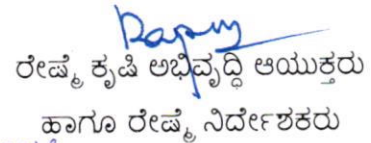 ರೇಷ್ಮೆ ಕೃಷಿ ಅಭಿವೃದ್ಧಿ ಆಯುಕ್ತರು
ಹಾಗೂ ರೇಷ್ಮೆ ನಿರ್ದೇಶಕರು